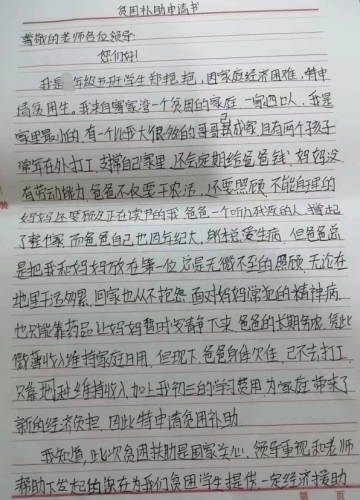 贫困补助申请书
尊敬的老师各位领导:
您们好!
我是 年级五班学生郑艳艳,因家庭经济困难,特申
请贫困生。我来自寡家湾一个贫困的家庭 一家四口人,我是
家里最小的,有一个比我大很多的哥哥已成家,且有两个孩子
常年在外打工,支常自己家里,还会定期给爸爸钱,妈妈没
有劳动能力,爸爸不仅要干农活,还要照顾 不能自理的
妈妈,还要顾及正在读书的我,爸爸一个听力残疾的人,撑起
了整个家,而爸爸自己也因年纪大,身体总爱生病,但爸爸总
是把我和妈妈放在第一位,总是无微不至的照顾,无论在
地里干活多累,回家也从不抱怨,面对妈妈常犯的精神病,
也只能靠药品让妈妈暂时安静下来,爸爸的长期务农,凭此
微薄收入维持家庭日用,但现下,爸爸身体欠佳,已不去打工,
只靠地种维持收入,加上我初三的学习费用,为家庭带来了
新的经济负担,因此特申请贫困补助
我知道,此次贫困扶助是国家关心,领导重视和老师
帮助下发起的,深在为我们贫困学生提供一定经济援助